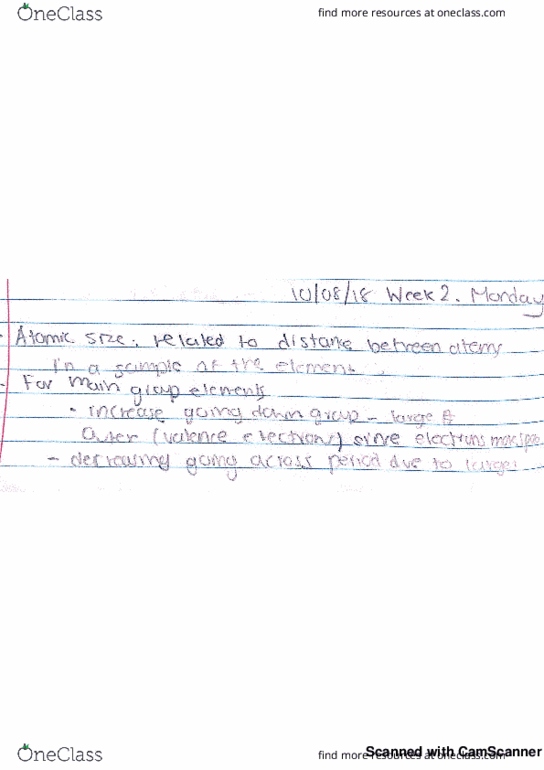 OneClass
find more resources at oneclass.com
10/08/18 Week 2. Monday
- Atomic size. related to distance between atoms
in a sample of the element.
- For main group elements
• increase going down group - large #
outer (valence electrons) since electrons
- decreasing going across period due to large
OneClass
find more resources at oneclass.com
Scanned with CamScanner